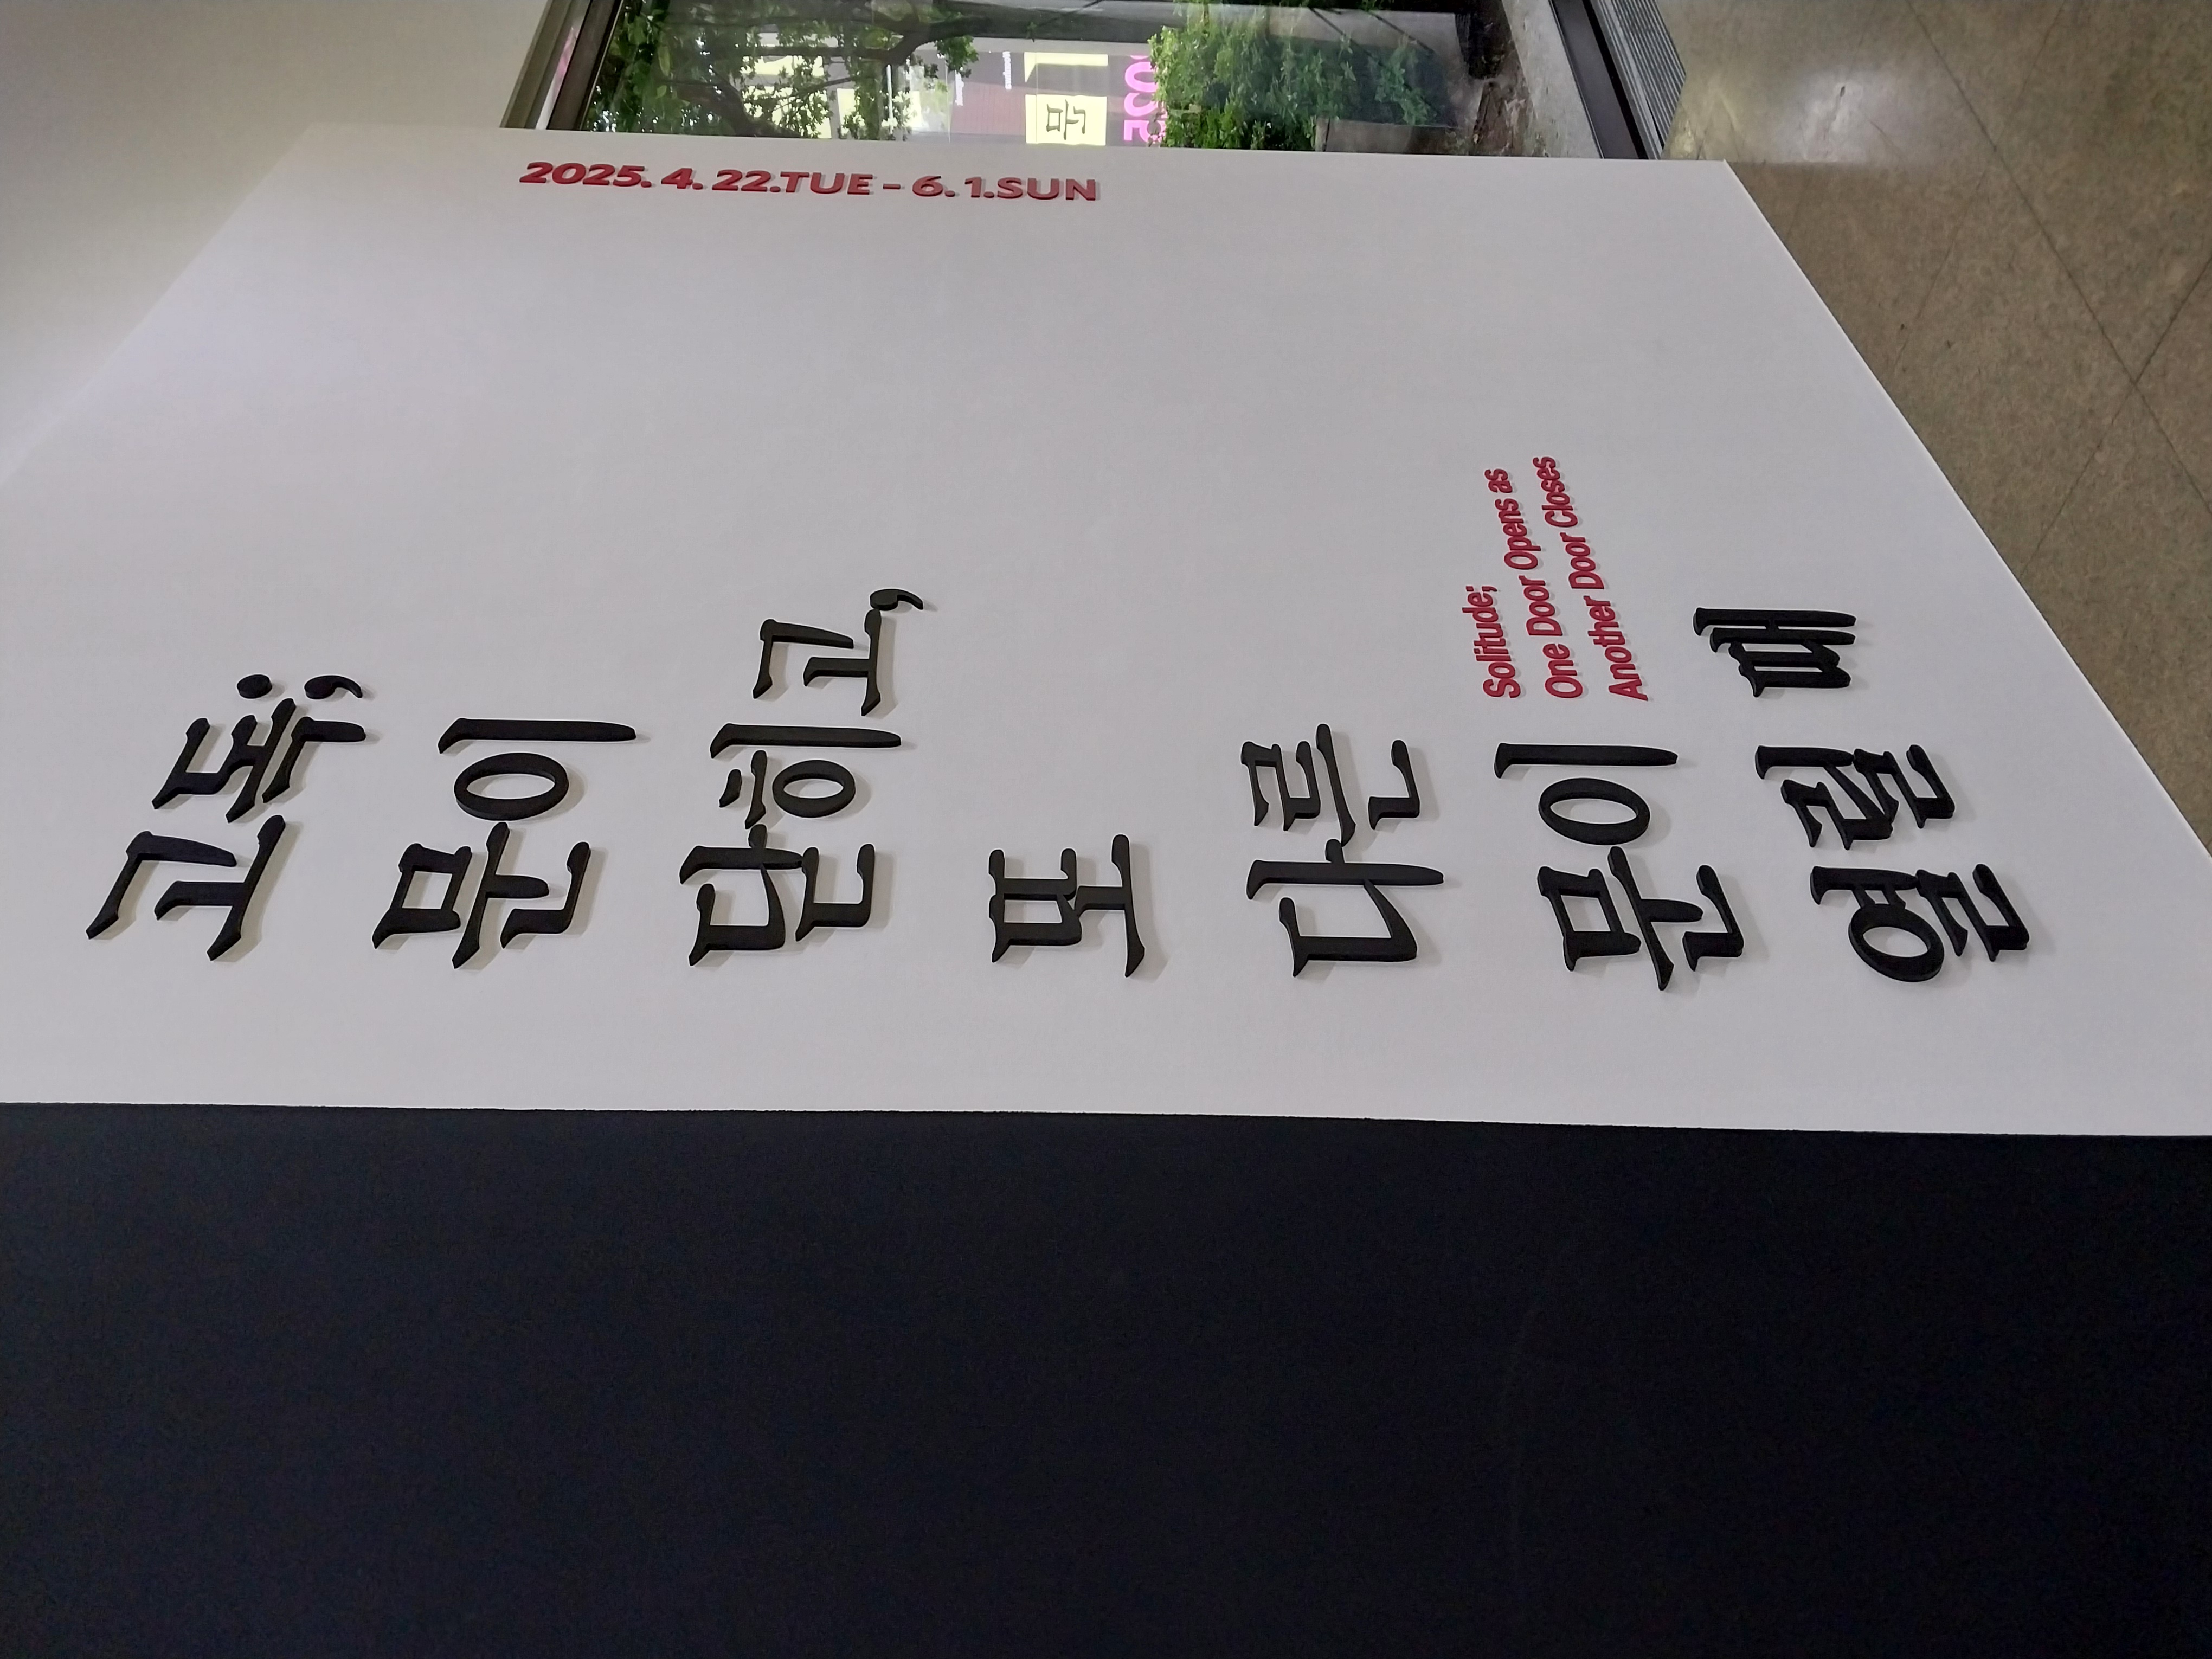 고독;
문이
닫히고,
또
다른
문이
열릴 때
Solitude;
One Door Opens as
Another Door Closes
2025. 4. 22.TUE – 6. 1.SUN